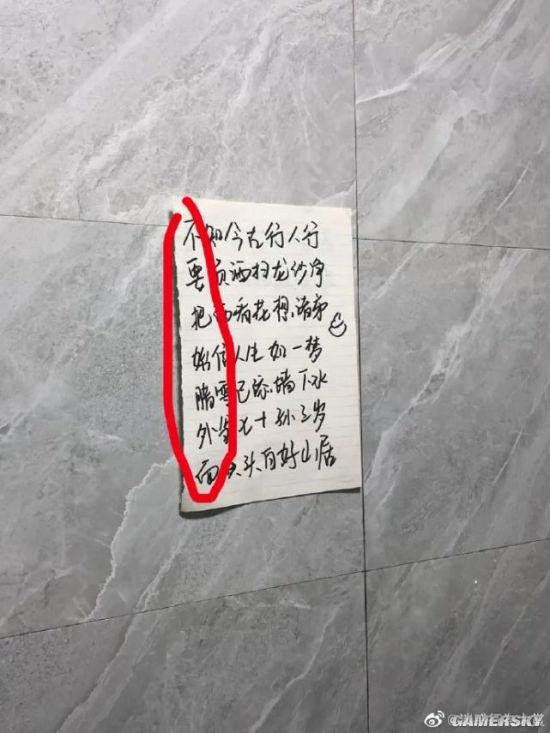 不知今古行人行
要须洒扫龙沙净
把酒看花想诸弟
始信人生如一梦
腊雪已添墙下水
外孙七十孙三岁
面头自好山居
GAMERSKY